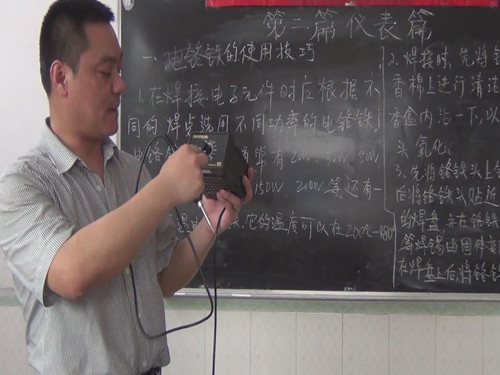 第二篇仪表篇
一、电烙铁的使用技巧
1.在焊接电子元件时应根据不
同的焊点选用不同功率的电烙铁,
常有20W、30W、50W
150W 200W等,还有一
它的温度可以在200℃-480
2.焊接时,先将铬
香棉上进行清洁
香盒内沾一下,以
头氧化.
3.先将铬铁头上
后将铬铁头贴近
的焊盘,并在铬铁
等焊锡由固体
在焊盘上后,将铬铁